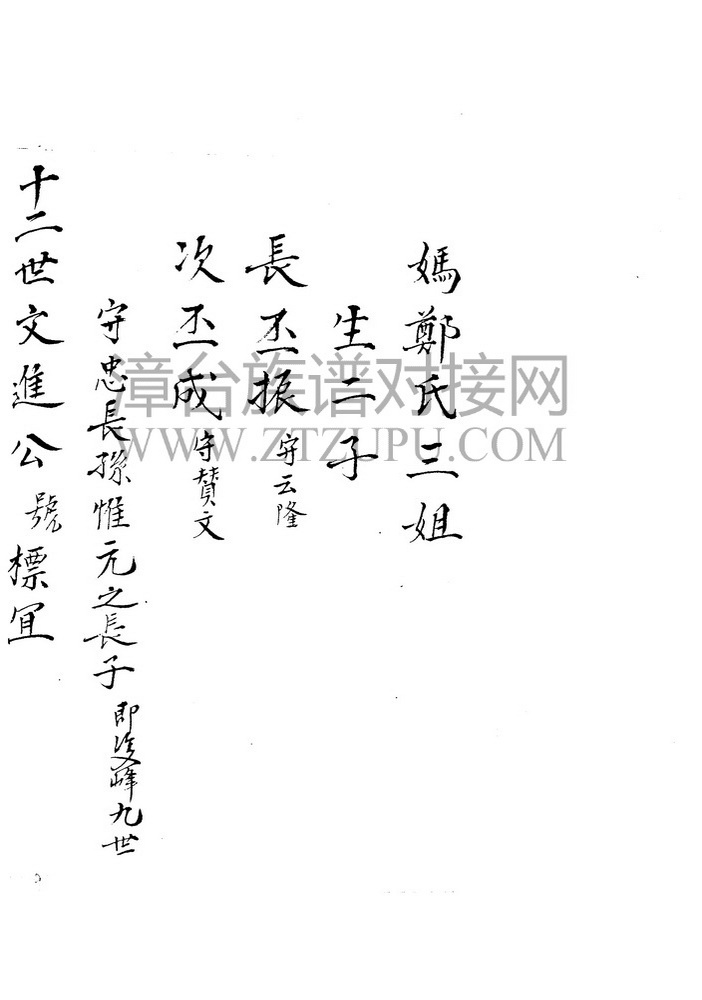 媽鄭氏三姐
生二子
長丕振 字云隆
次丕成 字贊文
守忠長孫惟元之長子 即後雙峰九世
十二世文進公 號標宜
漳台族谱对接网
WWW.ZTZUPU.COM